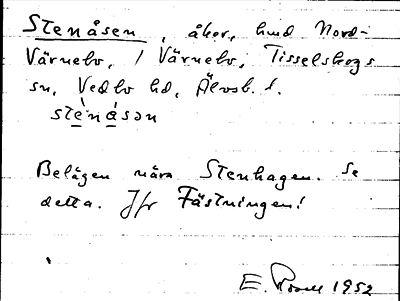 Stenåsen, åker, hmd Nord-
Värnebo, / Värnebo, Tisselskogs
sn, Vedbo hd, Älvsb. l.
stènásən
Belägen nära Stenhagen. Se
detta. Jfr Fästningen!
E. 1952